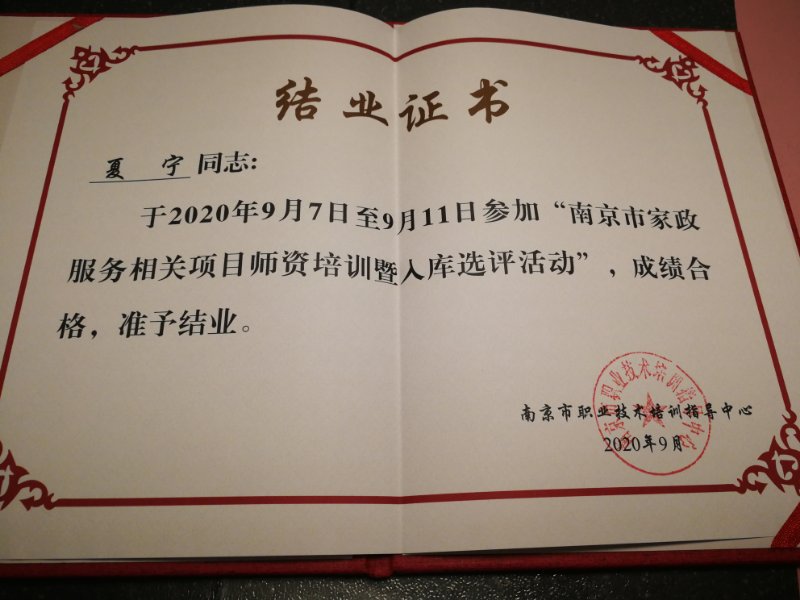 结业证书
夏 宁 同志:
于2020年9月7日至9月11日参加“南京市家政
服务相关项目师资培训暨入库选评活动”，成绩合
格，准予结业。
南京市职业技术培训指导中心
2020年9月